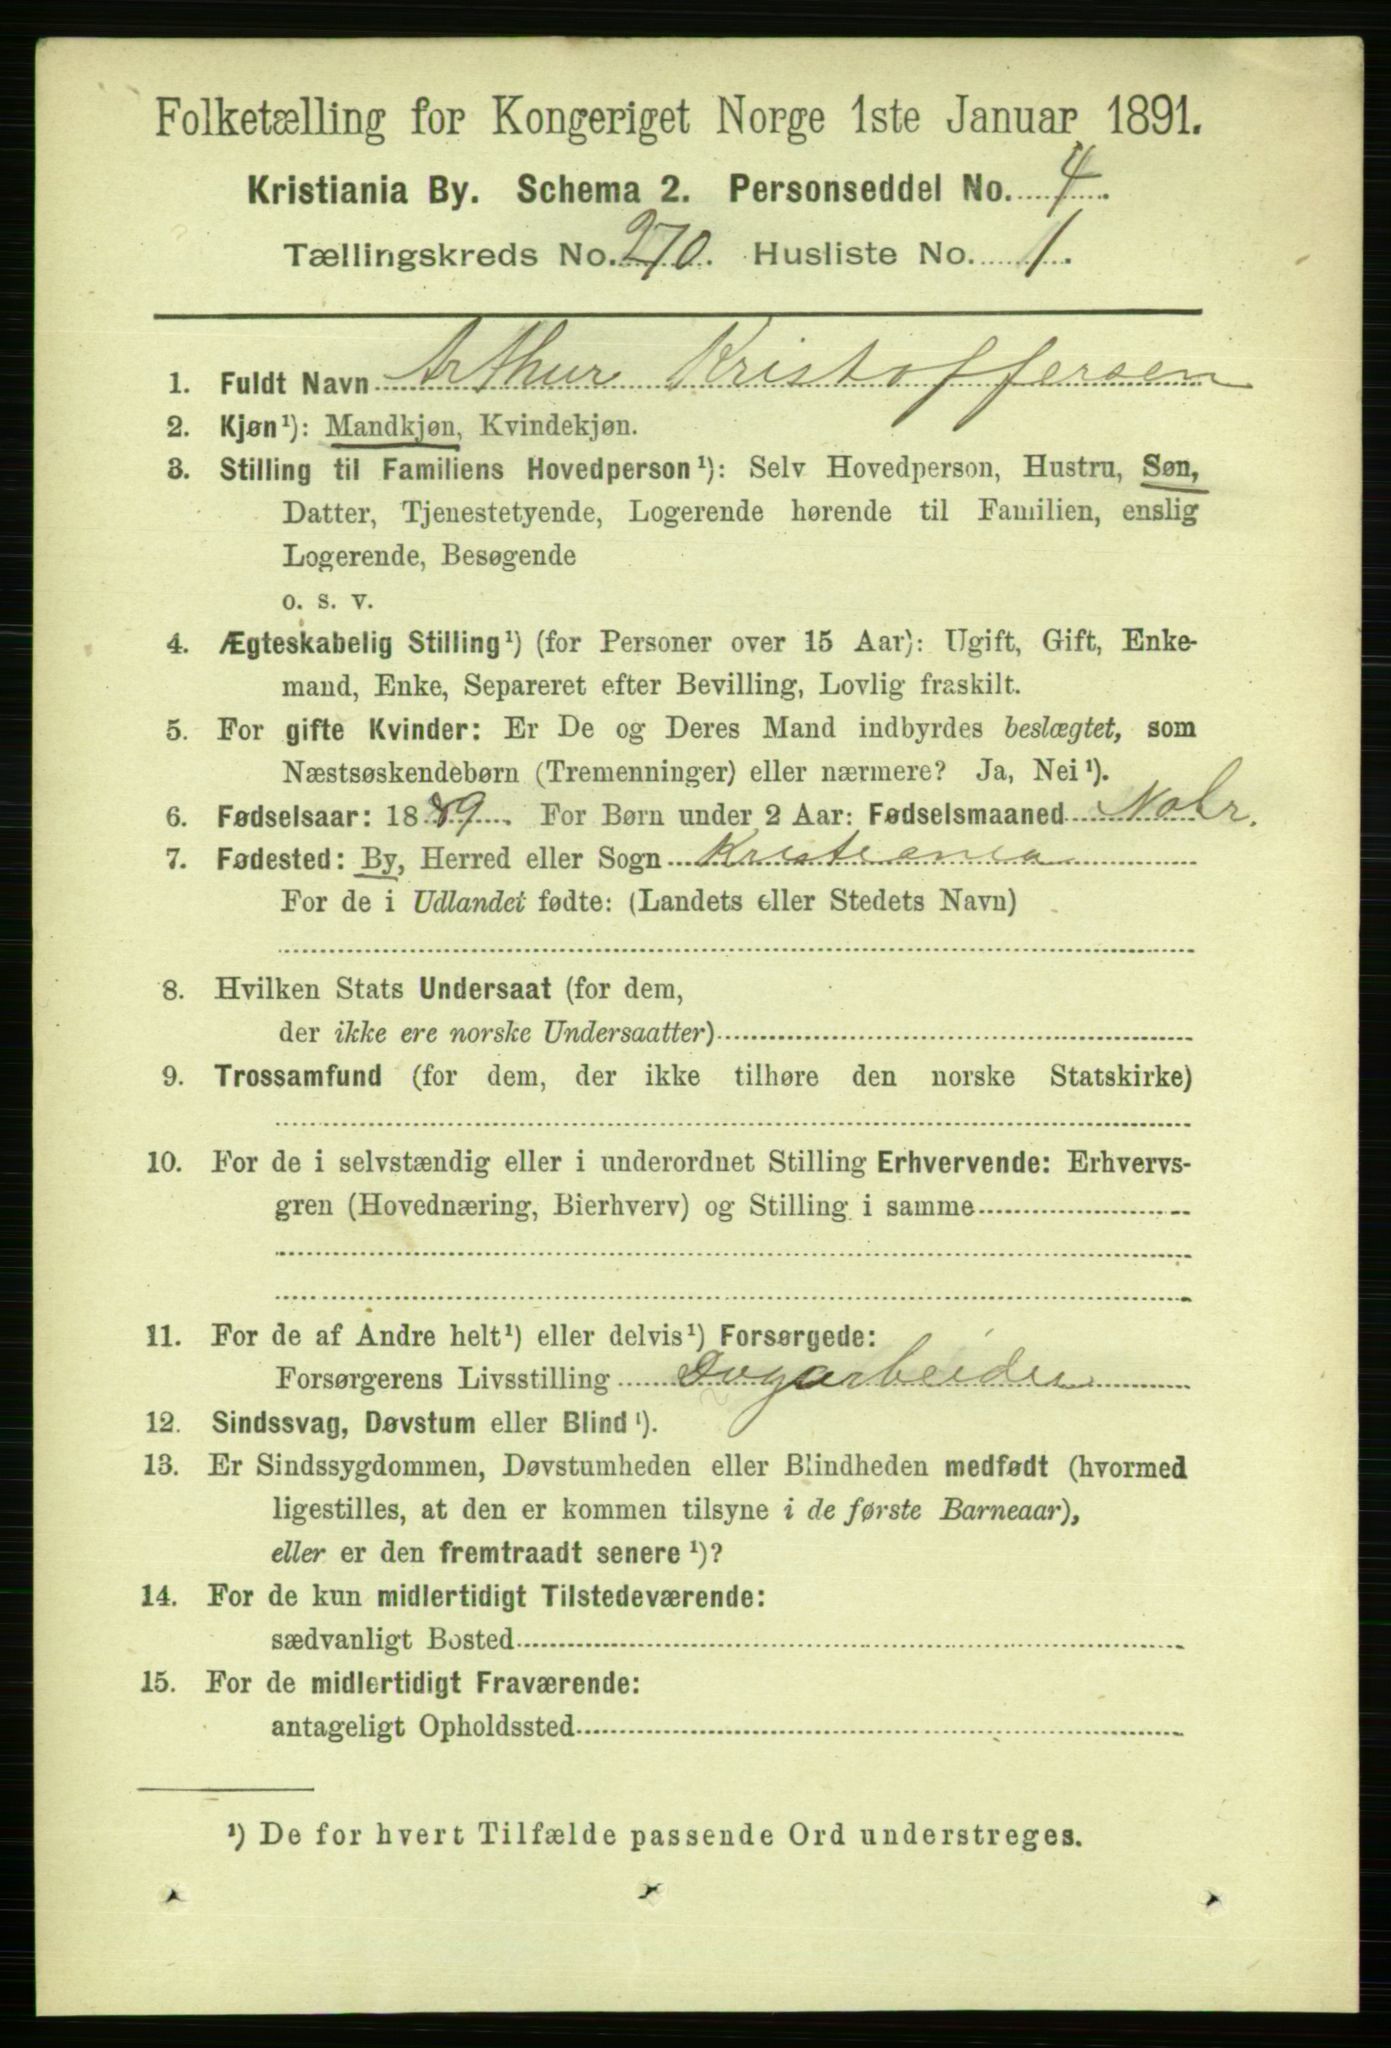 Folketælling for Kongeriget Norge 1ste Januar 1891.
Kristiania By. Schema 2. Personseddel No. 4.
Tællingskreds No. 270. Husliste No. 1.
1. Fuldt Navn Arthur Kristoffersen
2. Kjøn¹): Mandkjøn, Kvindekjøn.
3. Stilling til Familiens Hovedperson¹): Selv Hovedperson, Hustru, Søn,
Datter, Tjenestetyende, Logerende hørende til Familien, enslig
Logerende, Besøgende
o. s. v.
4. Ægteskabelig Stilling¹) (for Personer over 15 Aar): Ugift, Gift, Enke-
mand, Enke, Separeret efter Bevilling, Lovlig fraskilt.
5. For gifte Kvinder: Er De og Deres Mand indbyrdes beslægtet, som
Næstsøskendebørn (Tremenninger) eller nærmere? Ja, Nei¹).
6. Fødselsaar: 1889. For Børn under 2 Aar: Fødselsmaaned Nobr.
7. Fødested: By, Herred eller Sogn Kristiania
For de i Udlandet fødte: (Landets eller Stedets Navn)
8. Hvilken Stats Undersaat (for dem,
der ikke ere norske Undersaatter)
9. Trossamfund (for dem, der ikke tilhøre den norske Statskirke)
10. For de i selvstændig eller i underordnet Stilling Erhvervende: Erhvervs-
gren (Hovednæring, Bierhverv) og Stilling i samme
11. For de af Andre helt¹) eller delvis¹) Forsørgede:
Forsørgerens Livsstilling
12. Sindssvag, Døvstum eller Blind¹).
13. Er Sindssygdommen, Døvstumheden eller Blindheden medfødt (hvormed
ligestilles, at den er kommen tilsyne i de første Barneaar),
eller er den fremtraadt senere¹)?
14. For de kun midlertidigt Tilstedeværende:
sædvanligt Bosted
15. For de midlertidigt Fraværende:
antageligt Opholdssted
¹) De for hvert Tilfælde passende Ord understreges.